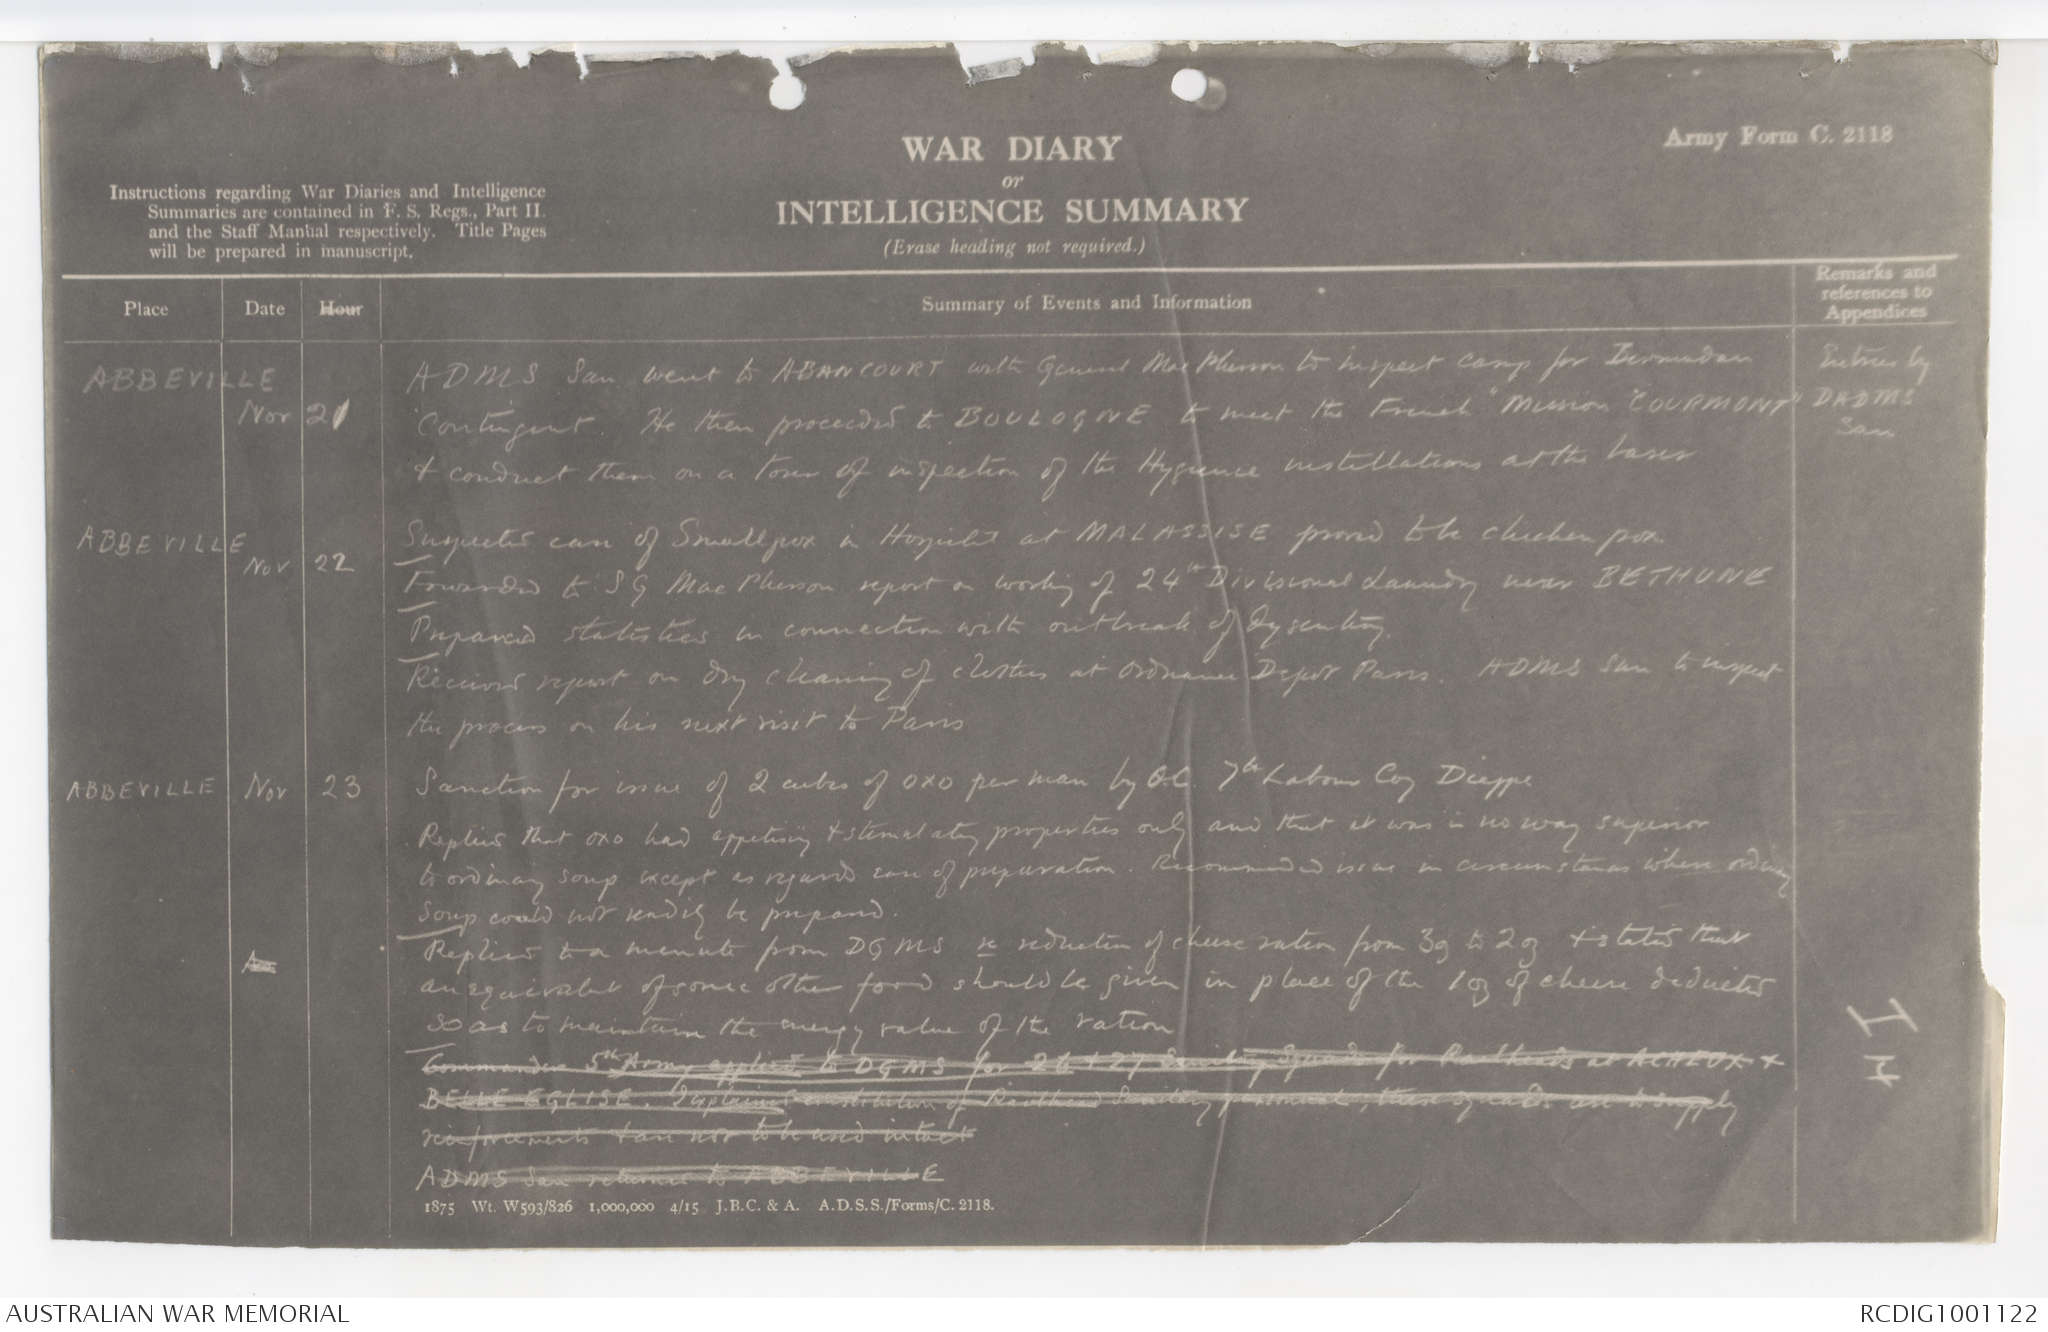 Army Form C. 2118
WAR DIARY
or
INTELLIGENCE SUMMARY
(Erase heading not required.)
Instructions regarding War Diaries and Intelligence
Summaries are contained in F. S. Regs., Part II.
and the Staff Manual respectively. Title Pages
will be prepared in manuscript.
Place Date Hour Summary of Events and Information
Remarks and
references to
Appendices
ABBEVILLE Nov 21
ADMS San went to ABANCOURT with General MacPherson to inspect camp for Bermudan
Contingent. He then proceeded to BOULOGNE to meet the French "Mission COURMONT"
& conduct them on a tour of inspection of the Hygiene installations at the bases
Entries by
DADMS
San
ABBEVILLE Nov 22
Suspected case of Smallpox in Hospital at MALASSISE proved to be chicken pox.
Forwarded to SG MacPherson report on working of 24th Divisional Laundry near BETHUNE
Prepared statistics in connection with outbreak of dysentery.
Received report on dry cleaning of clothes at Ordnance Depot Paris. ADMS San to inspect
the process on his next visit to Paris
ABBEVILLE Nov 23
Sanction for issue of 2 cubes of OXO per man by O.C. 7th Labour Coy Dieppe
Replied that oxo had appetising & stimulating properties only and that it was in no way superior
to ordinary soup except as regards ease of preparation. Recommended issue in circumstances where ordinary
soup could not readily be prepared.
Replied to a minute from DGMS re reduction of cheese ration from 3oz to 2oz & stated that
an equivalent of some other food should be given in place of the 1 oz of cheese deducted
so as to maintain the energy value of the ration
5th Army applied to DGMS for 26 & 27 Sanitary Squads for Railheads at ACHEUX &
BELLE EGLISE. Explained constitution of Railhead Sanitary personnel, these squads are to supply
reinforcements & are not to be used intact
ADMS San returned to ABBEVILLE
1875 Wt. W593/826 1,000,000 4/15 J.B.C. & A. A.D.S.S./Forms/C. 2118.
AUSTRALIAN WAR MEMORIAL
RCDIG1001122